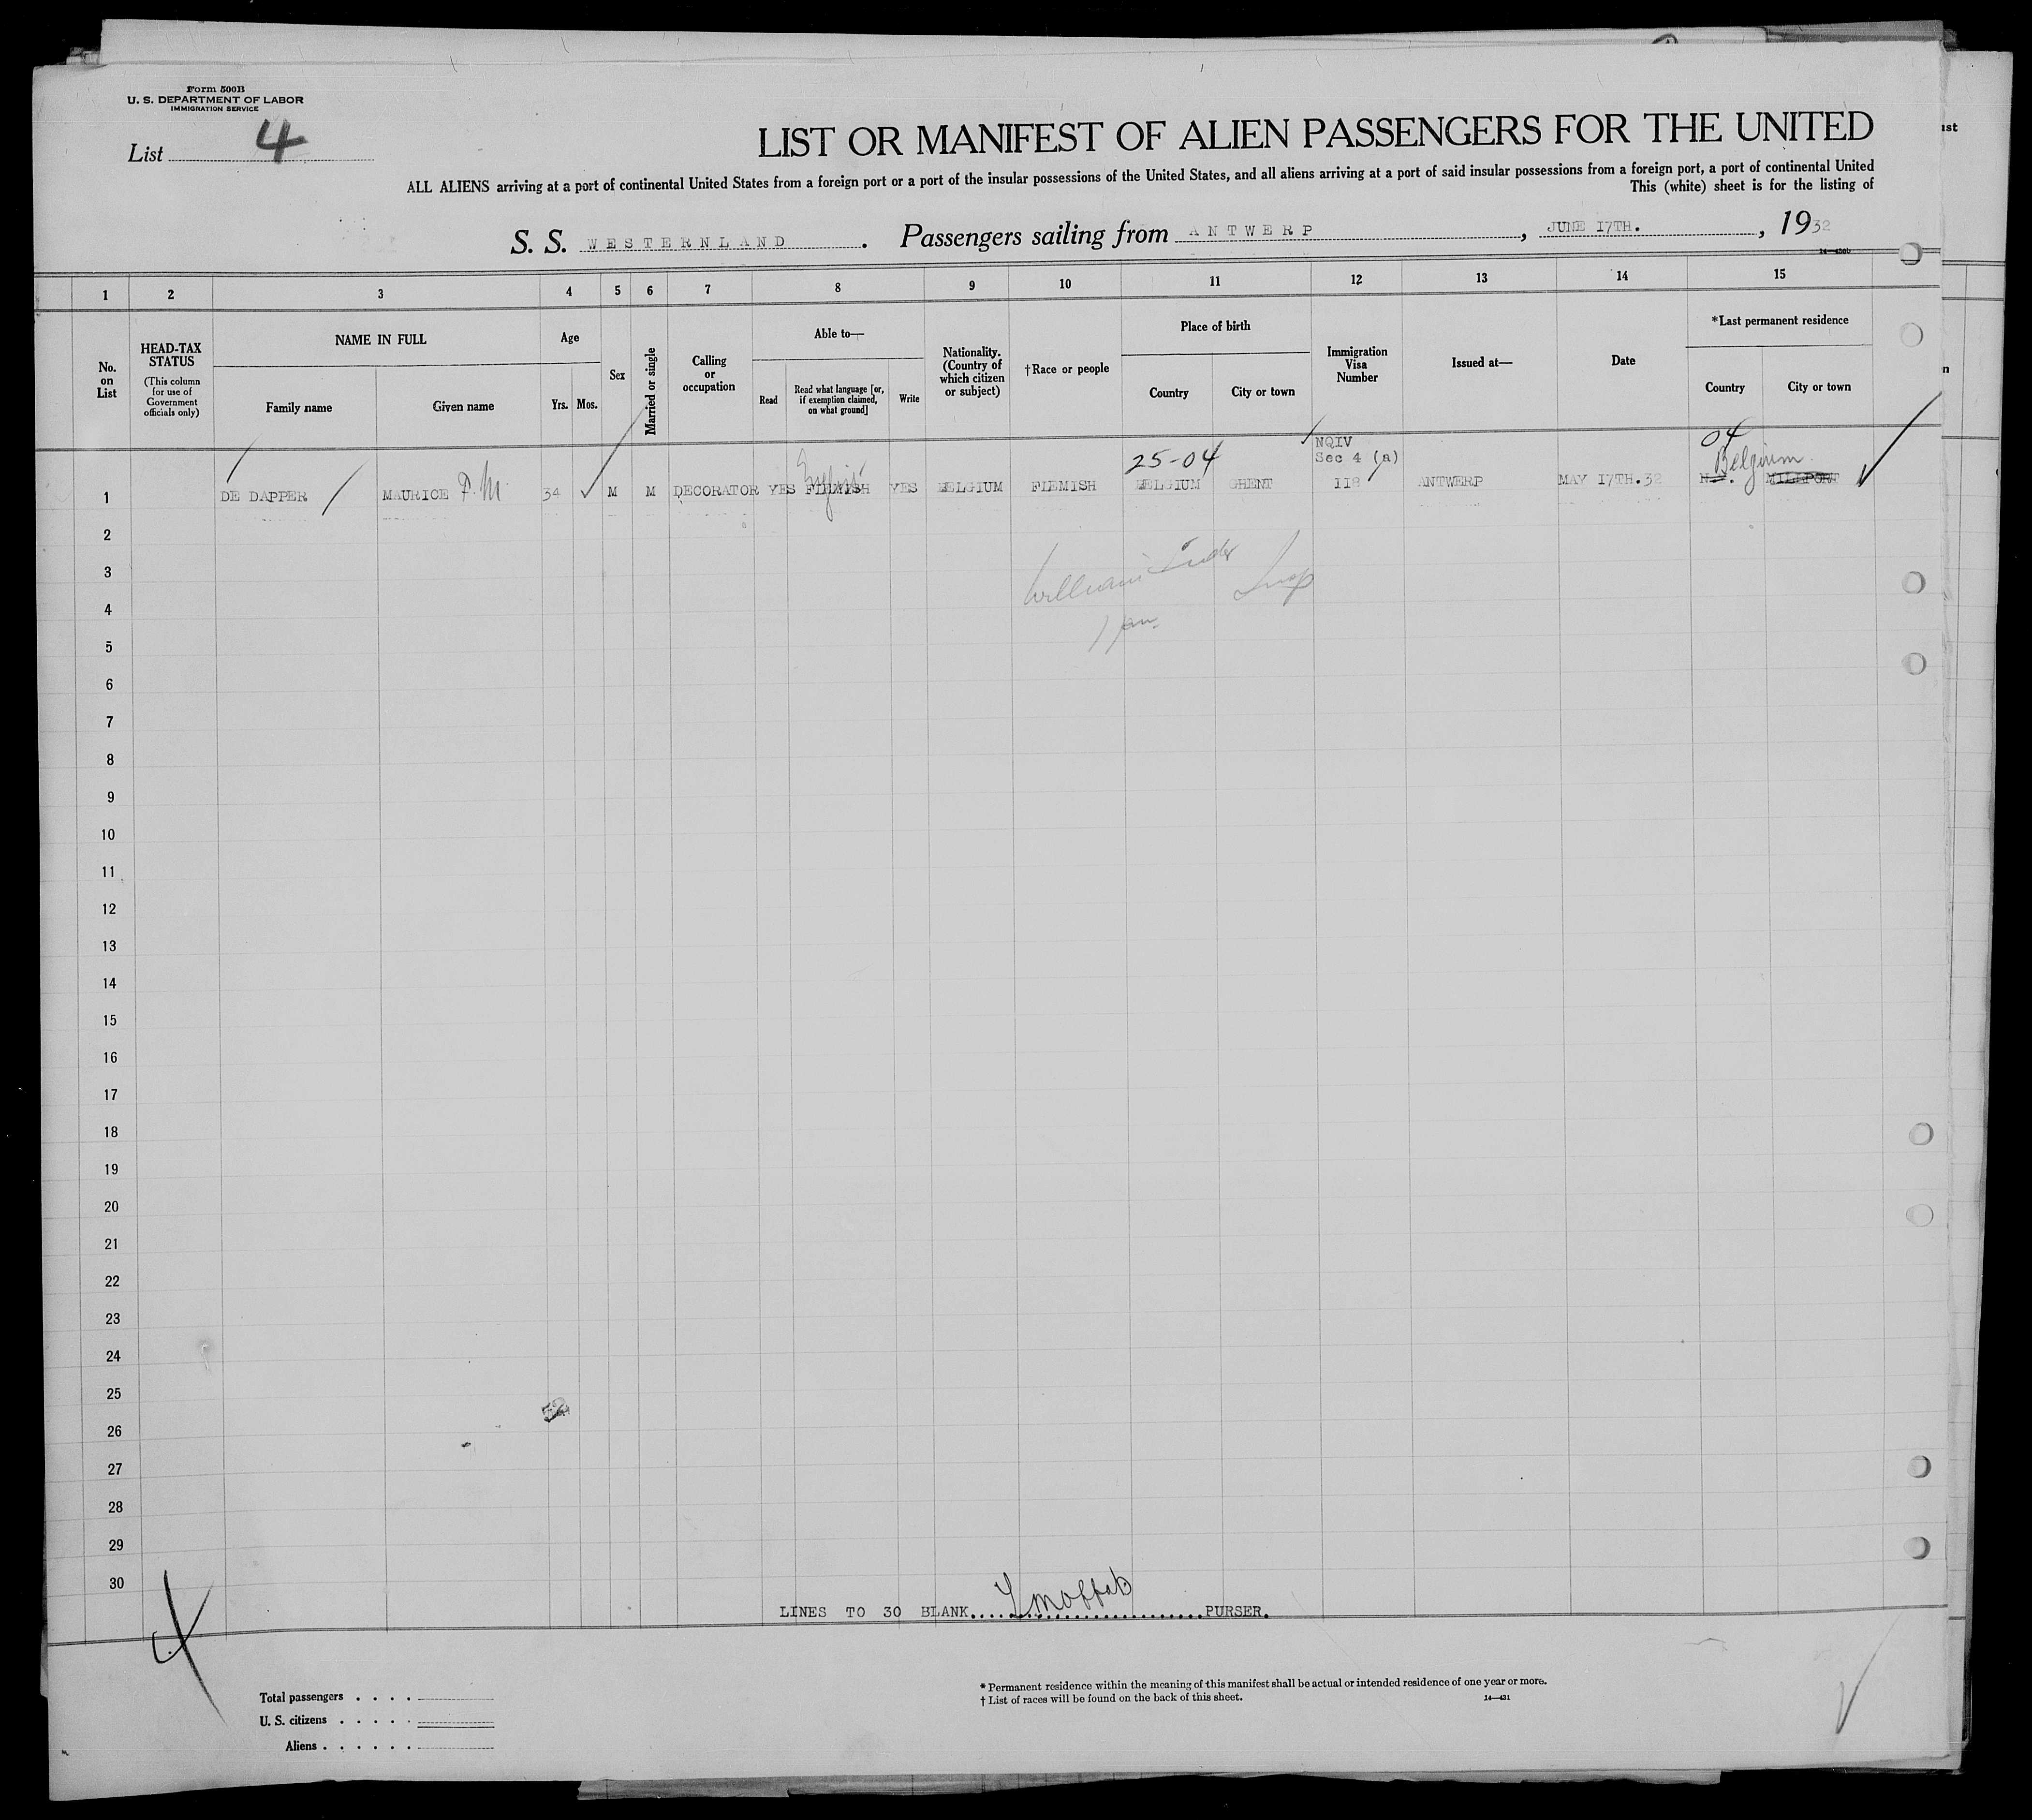 Form 500B
U. S. DEPARTMENT OF LABOR
IMMIGRATION SERVICE
List 4
LIST OR MANIFEST OF ALIEN PASSENGERS FOR THE UNITED
ALL ALIENS arriving at a port of continental United States from a foreign port or a port of the insular possessions of the United States, and all aliens arriving at a port of said insular possessions from a foreign port, a port of continental United
This (white) sheet is for the listing of
S. S. WESTERNLAND. Passengers sailing from ANTWERP, JUNE 17TH., 1932
14—430b
1 2 3 4 5 6 7 8 9 10 11 12 13 14 15
No. on List
HEAD-TAX STATUS
(This column for use of Government officials only)
NAME IN FULL
Family name
Given name
Age
Yrs. Mos.
Sex
Married or single
Calling or occupation
Able to—
Read
Read what language [or, if exemption claimed, on what ground]
Write
Nationality. (Country of which citizen or subject)
†Race or people
Place of birth
Country
City or town
Immigration Visa Number
Issued at—
Date
*Last permanent residence
Country
City or town
25-04
NQIV
Sec 4 (a)
04
Belgium
1 DE DAPPER MAURICE P. M. 34 M M DECORATOR YES FLEMISH English YES BELGIUM FLEMISH BELGIUM GHENT 118 ANTWERP MAY 17TH.32 N.J. MILLPORT
2
3
William Insp
4
5
6
7
8
9
10
11
12
13
14
15
16
17
18
19
20
21
22
23
24
25
26
27
28
29
30
LINES TO 30 BLANK PURSER.
Total passengers
U. S. citizens
Aliens
* Permanent residence within the meaning of this manifest shall be actual or intended residence of one year or more.
† List of races will be found on the back of this sheet.
14—431